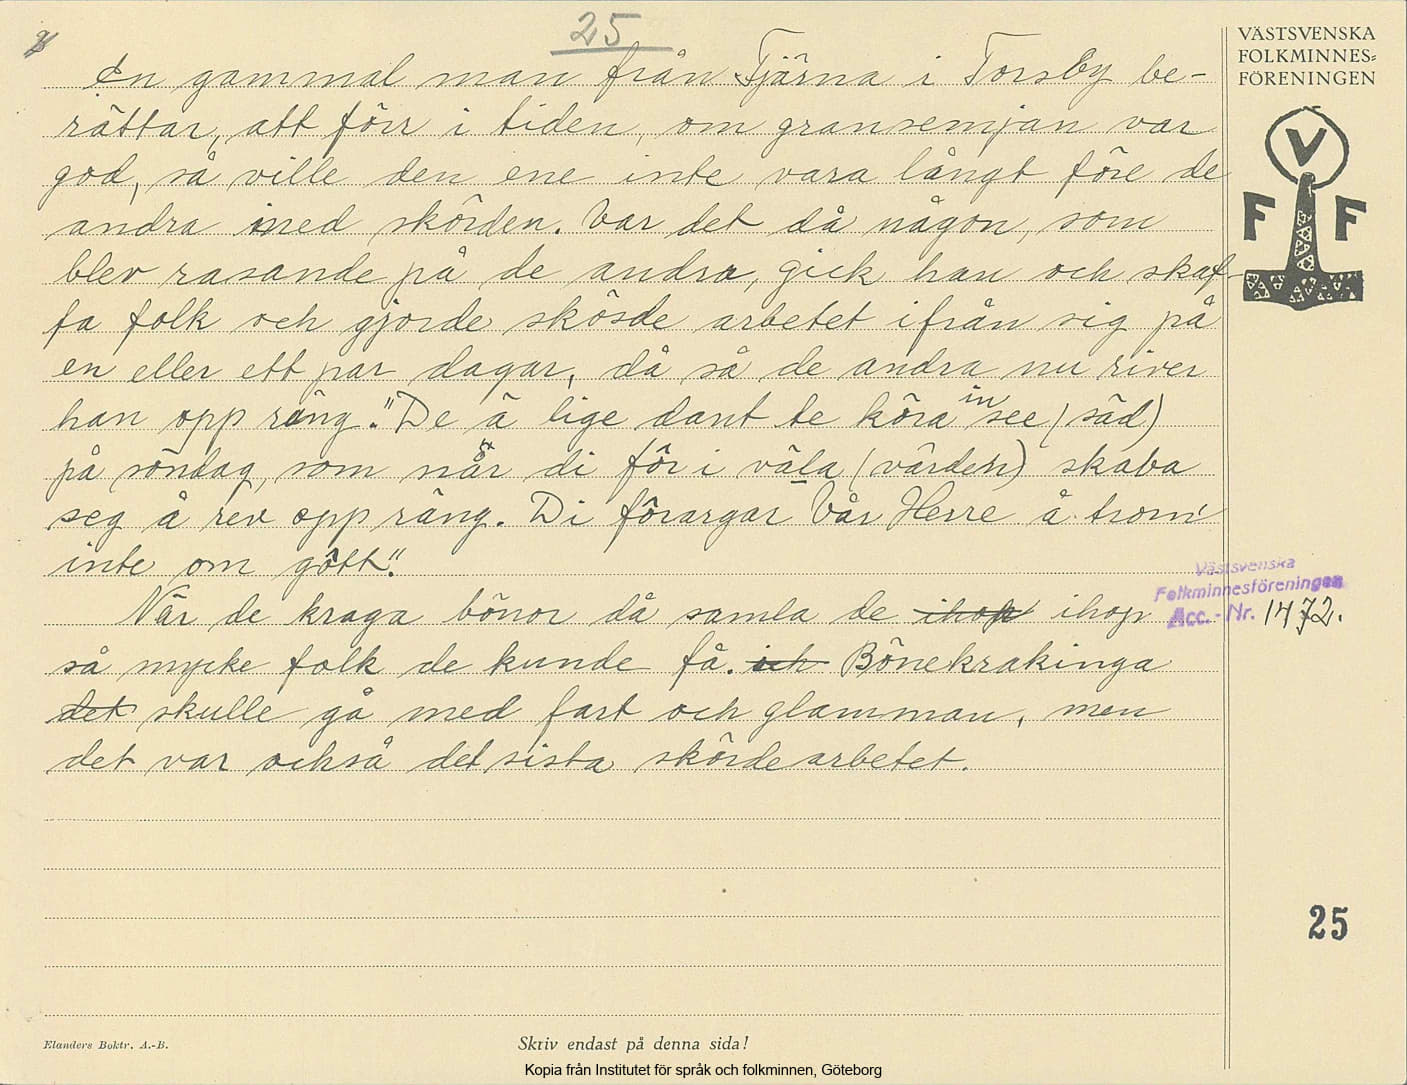 25
En gammal man från Tjärna i Torsby be-
rättar, att förr i tiden, om gransemjan var
god, så ville den ene inte vara långt före de
andra med skörden. Var det då någon, som
blev rasande på de andra, gick han och skaf-
fa folk och gjorde skörde arbetet ifrån sig på
en eller ett par dagar, då så de andra nu river
han opp räng. "De ä lige dant te köra in see (säd)
på söndag, som når di för i väla (världen) skaba
seg å rev opp räng. Di förargar Vår Herre å trom
inte om gôtt".
När de kraga bönor då samla de ihop ihop
så mycke folk de kunde få. och Bönekrakinga
det skulle gå med fart och glamman, men
det var också det sista skörde arbetet.
VÄSTSVENSKA
FOLKMINNES-
FÖRENINGEN
V
F F
Västsvenska
Folkminnesföreningen
Acc. - Nr. 1472.
25
Elanders Boktr. A.-B.
Skriv endast på denna sida!
Kopia från Institutet för språk och folkminnen, Göteborg